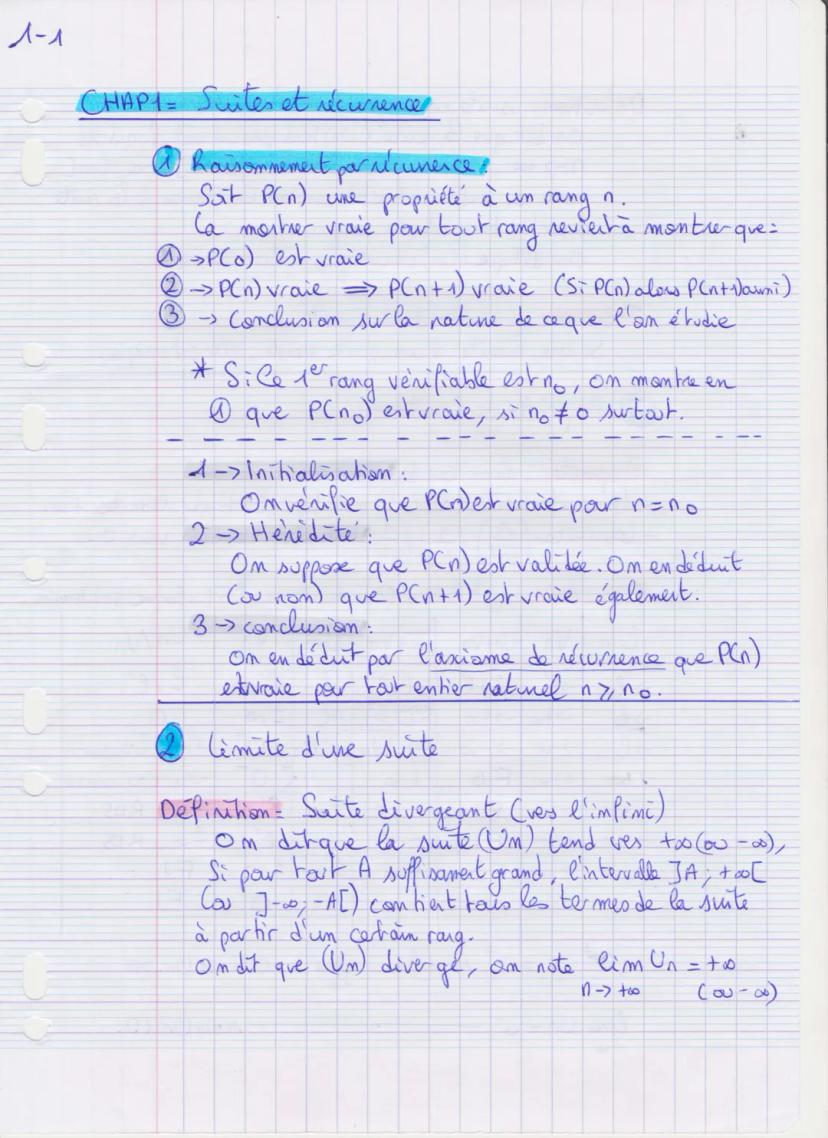 1-1
CHAP1 = Suites et récurrence
① Raisonnement par récurrence :
Soit P(n) une propriété à un rang n.
La montrer vraie pour tout rang revient à montrer que =
① → P(0) est vraie
② → P(n) vraie ⟹ P(n+1) vraie (Si P(n) alors P(n+1) aussi)
③ → Conclusion sur la nature de ce que l'on étudie
* Si le 1er rang vérifiable est n₀, on montre en
① que P(n₀) est vraie, si n₀ ≠ 0 surtout.
1 → Initialisation :
On vérifie que P(n) est vraie pour n = n₀
2 → Hérédité :
On suppose que P(n) est validée. On en déduit
(ou non) que P(n+1) est vraie également.
3 → conclusion :
On en déduit par l'axiome de récurrence que P(n)
est vraie pour tout entier naturel n ⩾ n₀.
② Limite d'une suite
Définition = Suite divergeant (vers l'infini)
On dit que la suite (Un) tend ves +∞ (ou -∞),
Si pour tout A suffisament grand, l'intervalle ]A ; +∞[
(ou ]-∞ ; -A[) contient tous les termes de la suite
à partir d'un certain rang.
On dit que (Un) diverge, on note lim Un = +∞
n → +∞ (ou -∞)